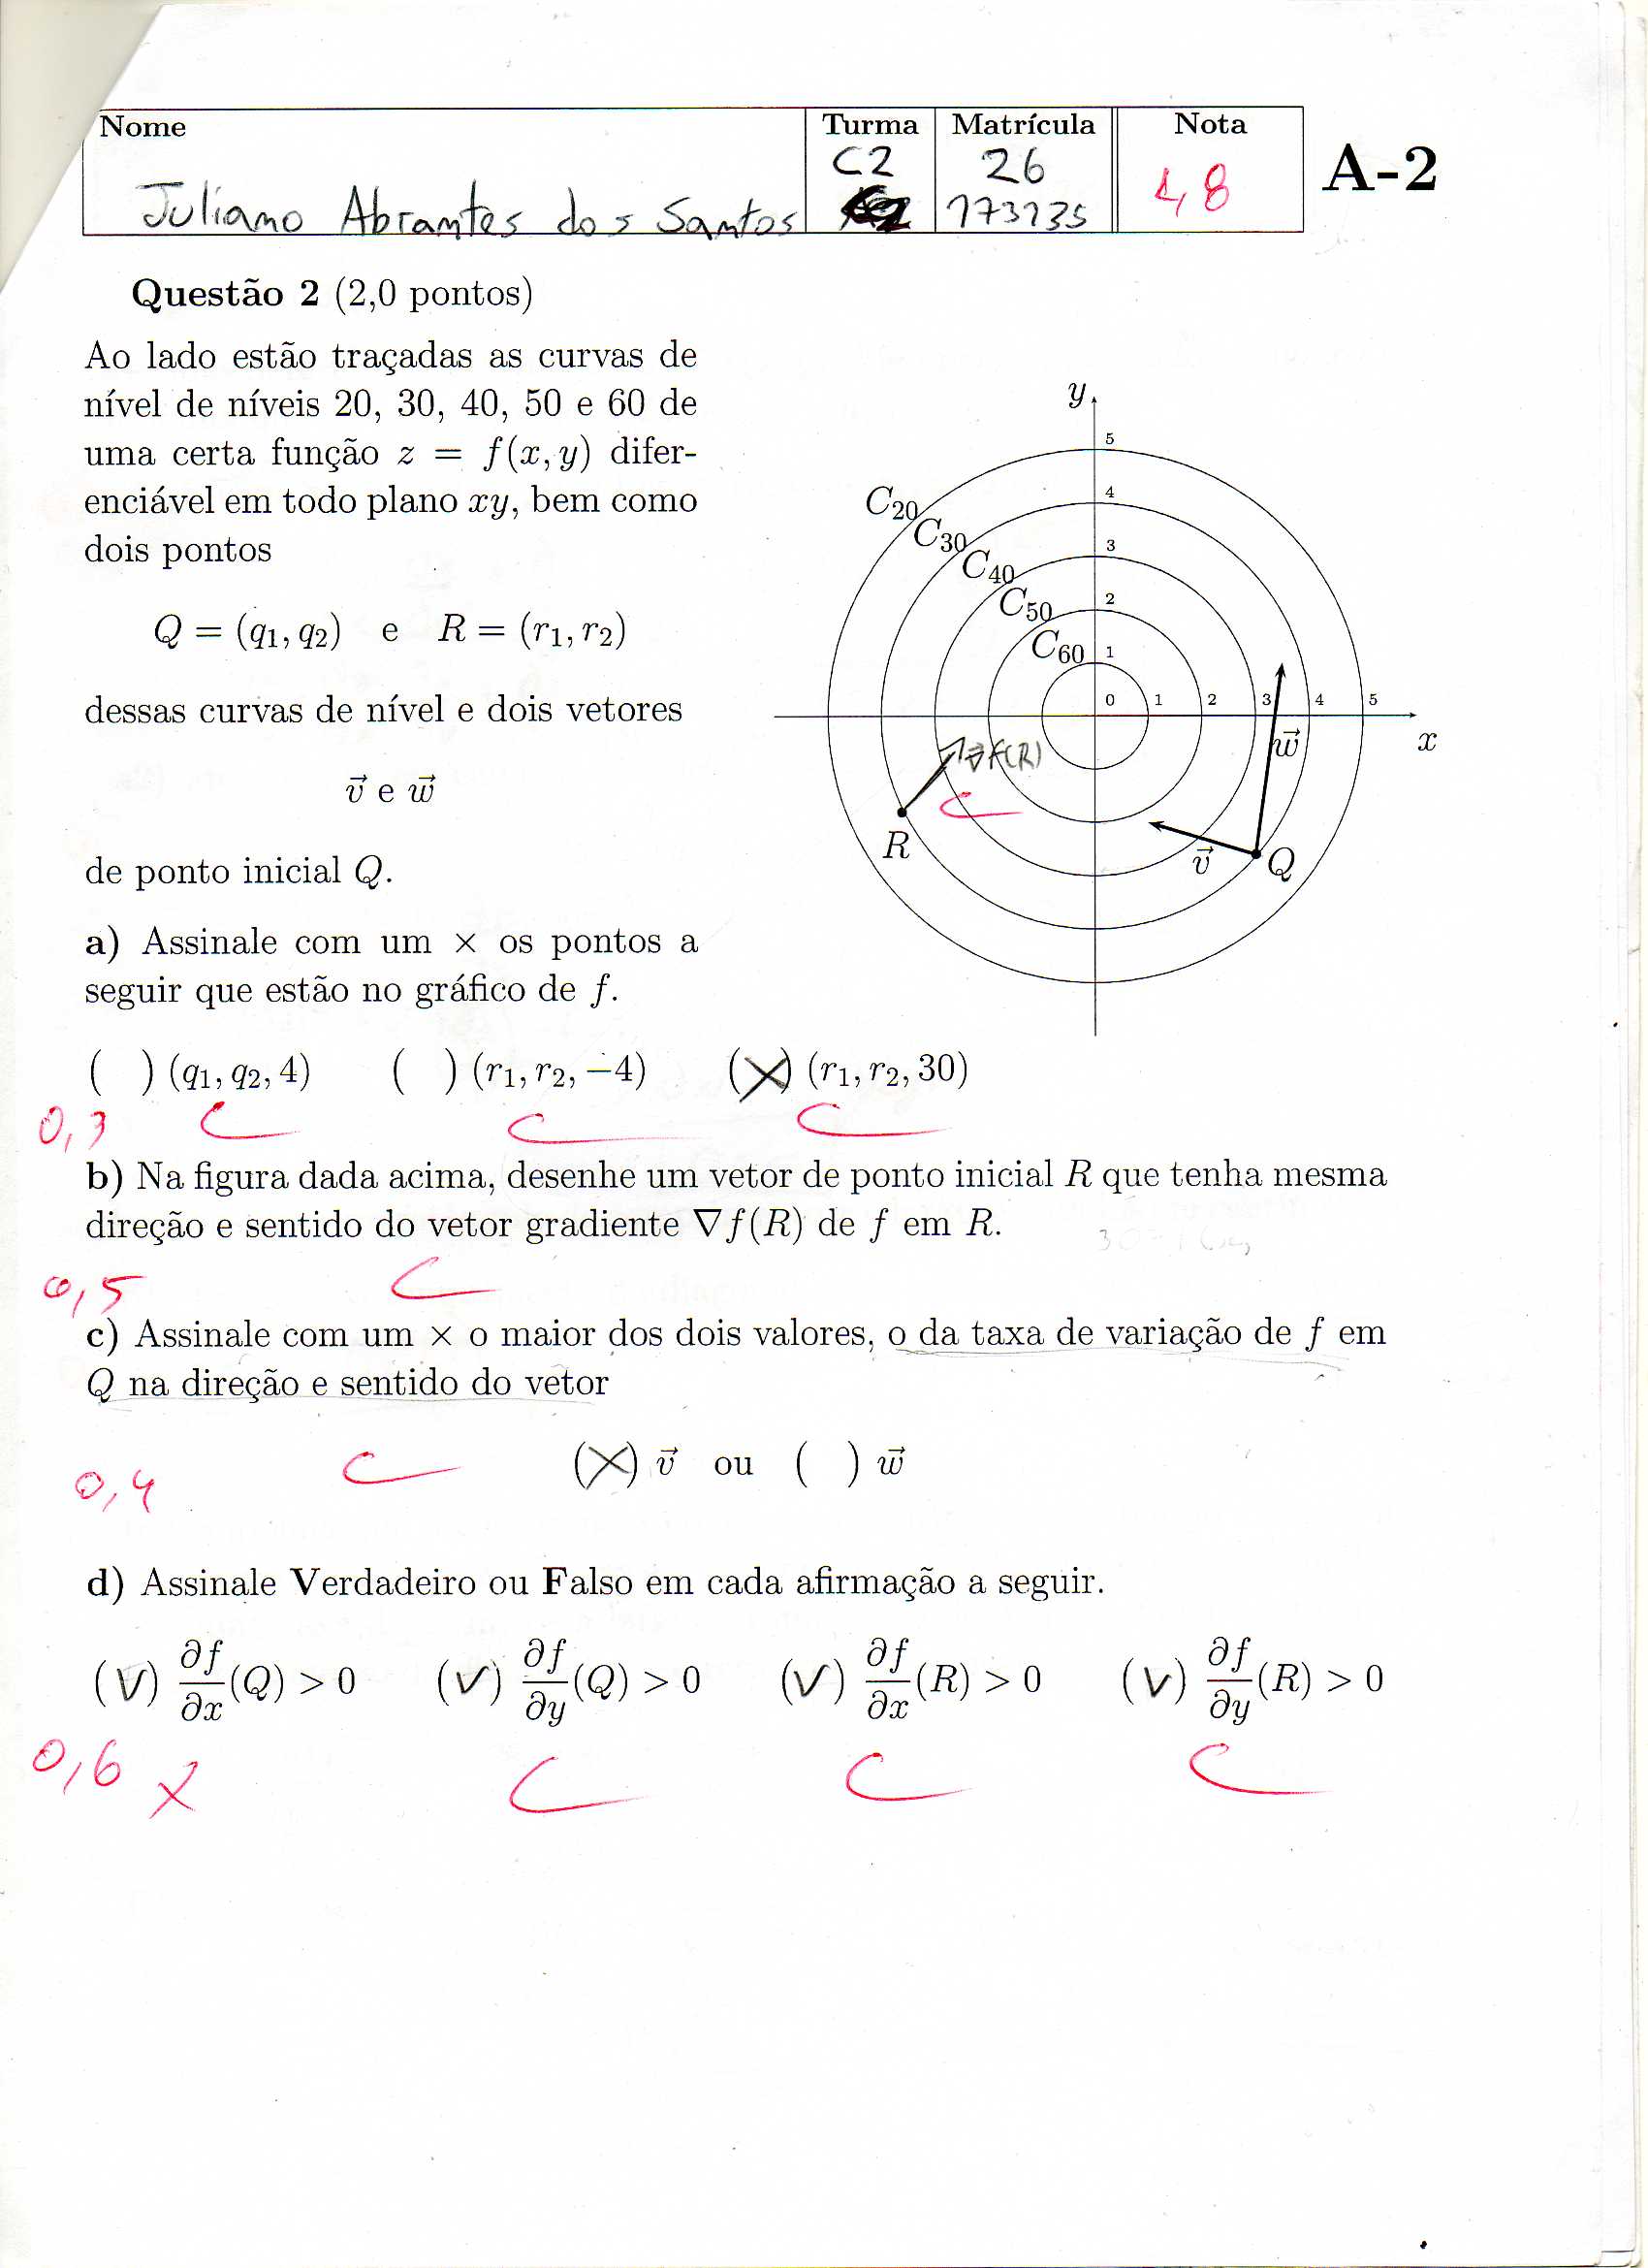 Nome Turma Matrícula Nota
C2 26 1,8 A-2
Juliano Abrantes dos Santos 173135
Questão 2 (2,0 pontos)
Ao lado estão traçadas as curvas de
nível de níveis 20, 30, 40, 50 e 60 de
uma certa função z = f(x, y) difer-
enciável em todo plano xy, bem como
dois pontos
Q = (q₁, q₂) e R = (r₁, r₂)
dessas curvas de nível e dois vetores
v⃗ e w⃗
de ponto inicial Q.
y
5
C₂₀ 4
C₃₀ 3
C₄₀
C₅₀ 2
C₆₀ 1
0 1 2 3 4 5
x
w⃗
∇f(R)
C
R
v⃗ Q
a) Assinale com um × os pontos a
seguir que estão no gráfico de f.
( ) (q₁, q₂, 4) ( ) (r₁, r₂, −4) (×) (r₁, r₂, 30)
0,3 C C C
b) Na figura dada acima, desenhe um vetor de ponto inicial R que tenha mesma
direção e sentido do vetor gradiente ∇f(R) de f em R.
0,5 C
c) Assinale com um × o maior dos dois valores, o da taxa de variação de f em
Q na direção e sentido do vetor
(×) v⃗ ou ( ) w⃗
0,4 C
d) Assinale Verdadeiro ou Falso em cada afirmação a seguir.
(V) ∂f/∂x(Q) > 0 (V) ∂f/∂y(Q) > 0 (V) ∂f/∂x(R) > 0 (V) ∂f/∂y(R) > 0
0,6 X C C C